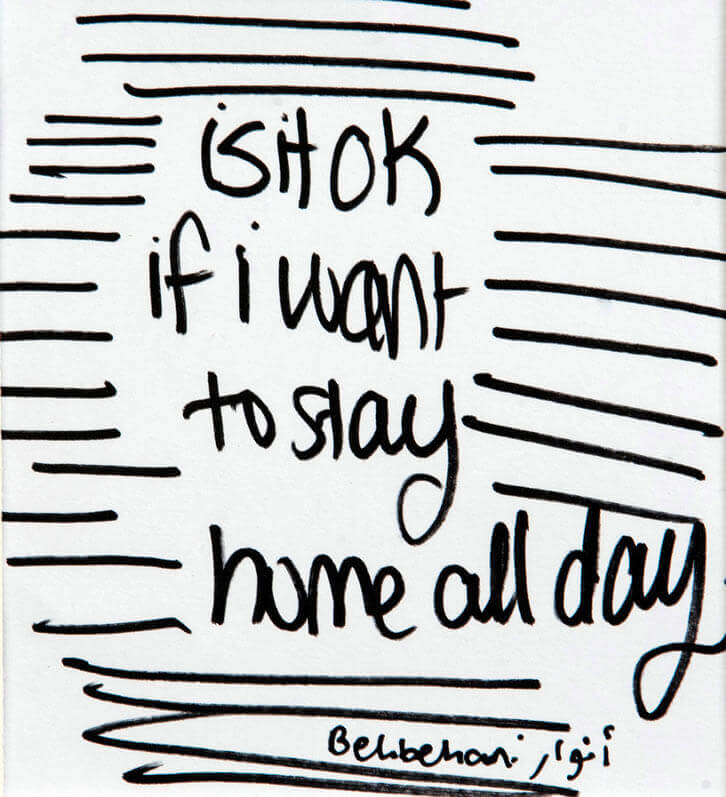 is it OK
if i want
to stay
home all day
Behbehani أنوار